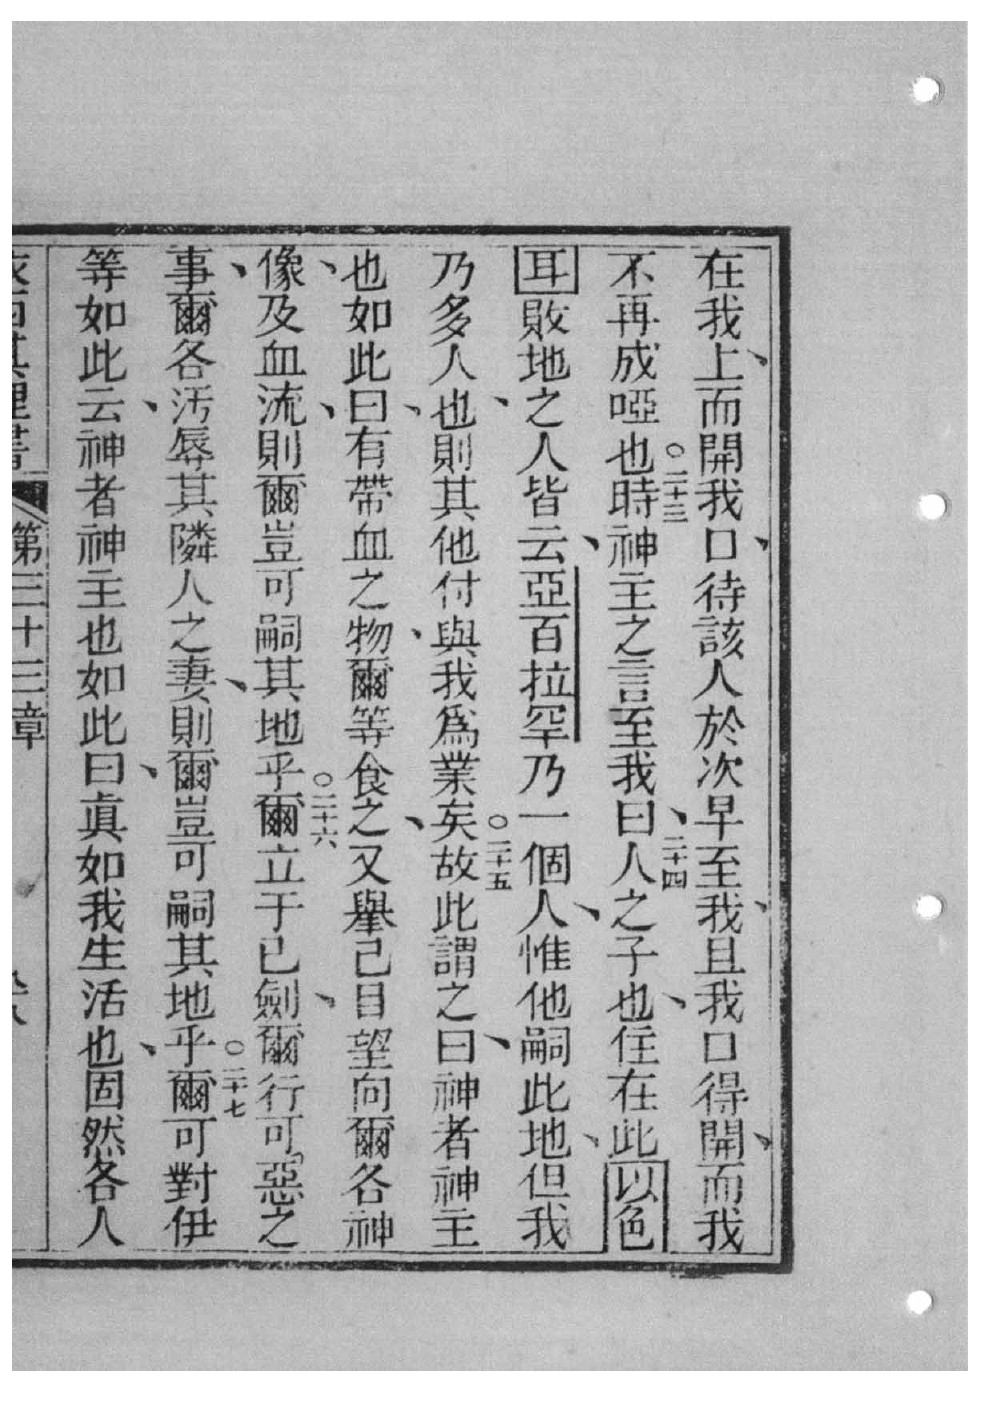 在我上、而開我口、待該人於次早至我、且我口得開、而我
不再成啞也○二十三時神主之言至我曰、二十四人之子也、住在此以色
耳敗地之人皆云、亞百拉罕乃一個人、惟他嗣此地、但我
乃多人也、則其他付與我爲業矣○二十五故此謂之曰、神者神主
也如此曰、有帶血之物、爾等食之、又舉己目望向爾各神
像、及血流、則爾豈可嗣其地乎○二十六爾立于己劍、爾行可惡之
事、爾各汚辱其隣人之妻、則爾豈可嗣其地乎○二十七爾可對伊
等如此云、神者神主也如此曰、眞如我生活也、固然各人
第三十三章